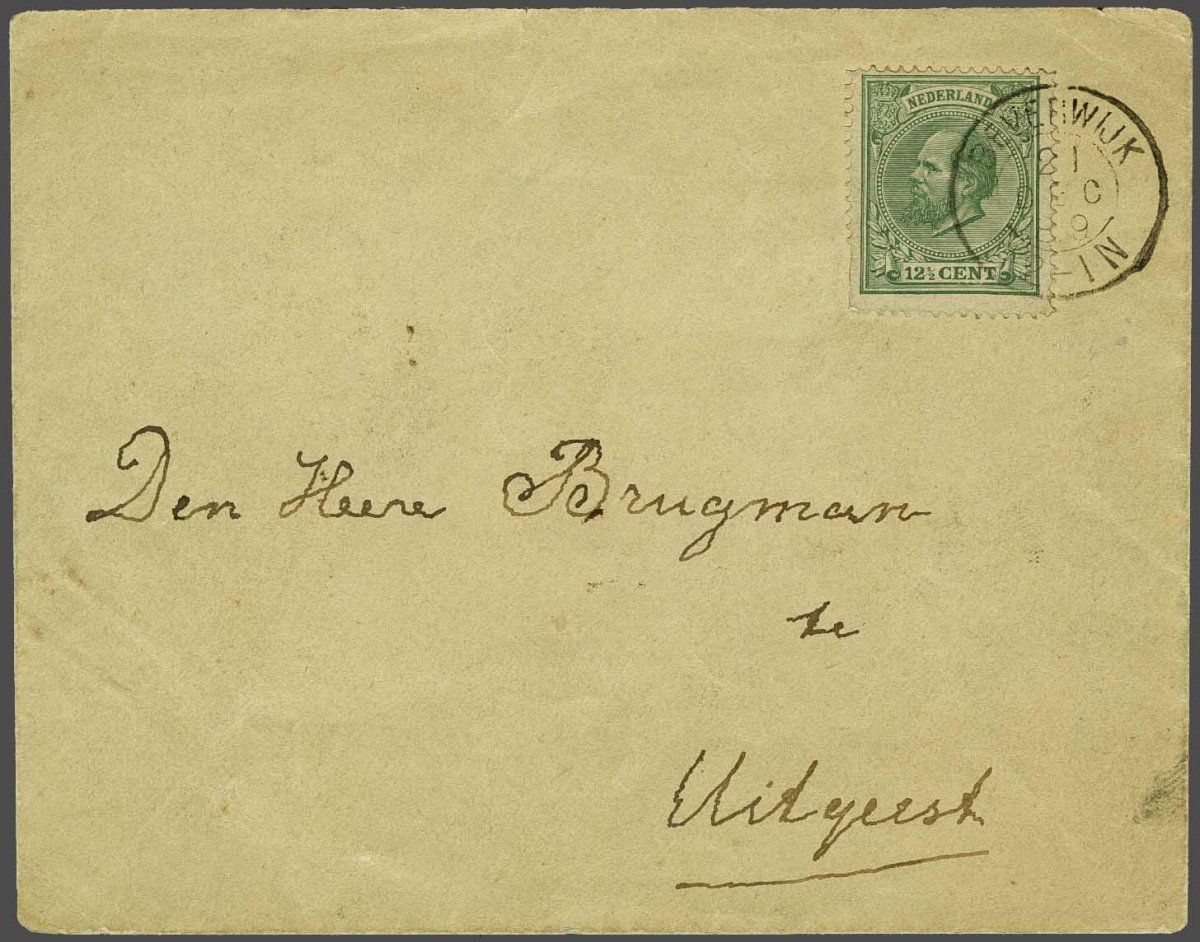 NEDERLAND
12½ CENT
BEVERWIJK
Den Heere Brugman
te
Uitgeest